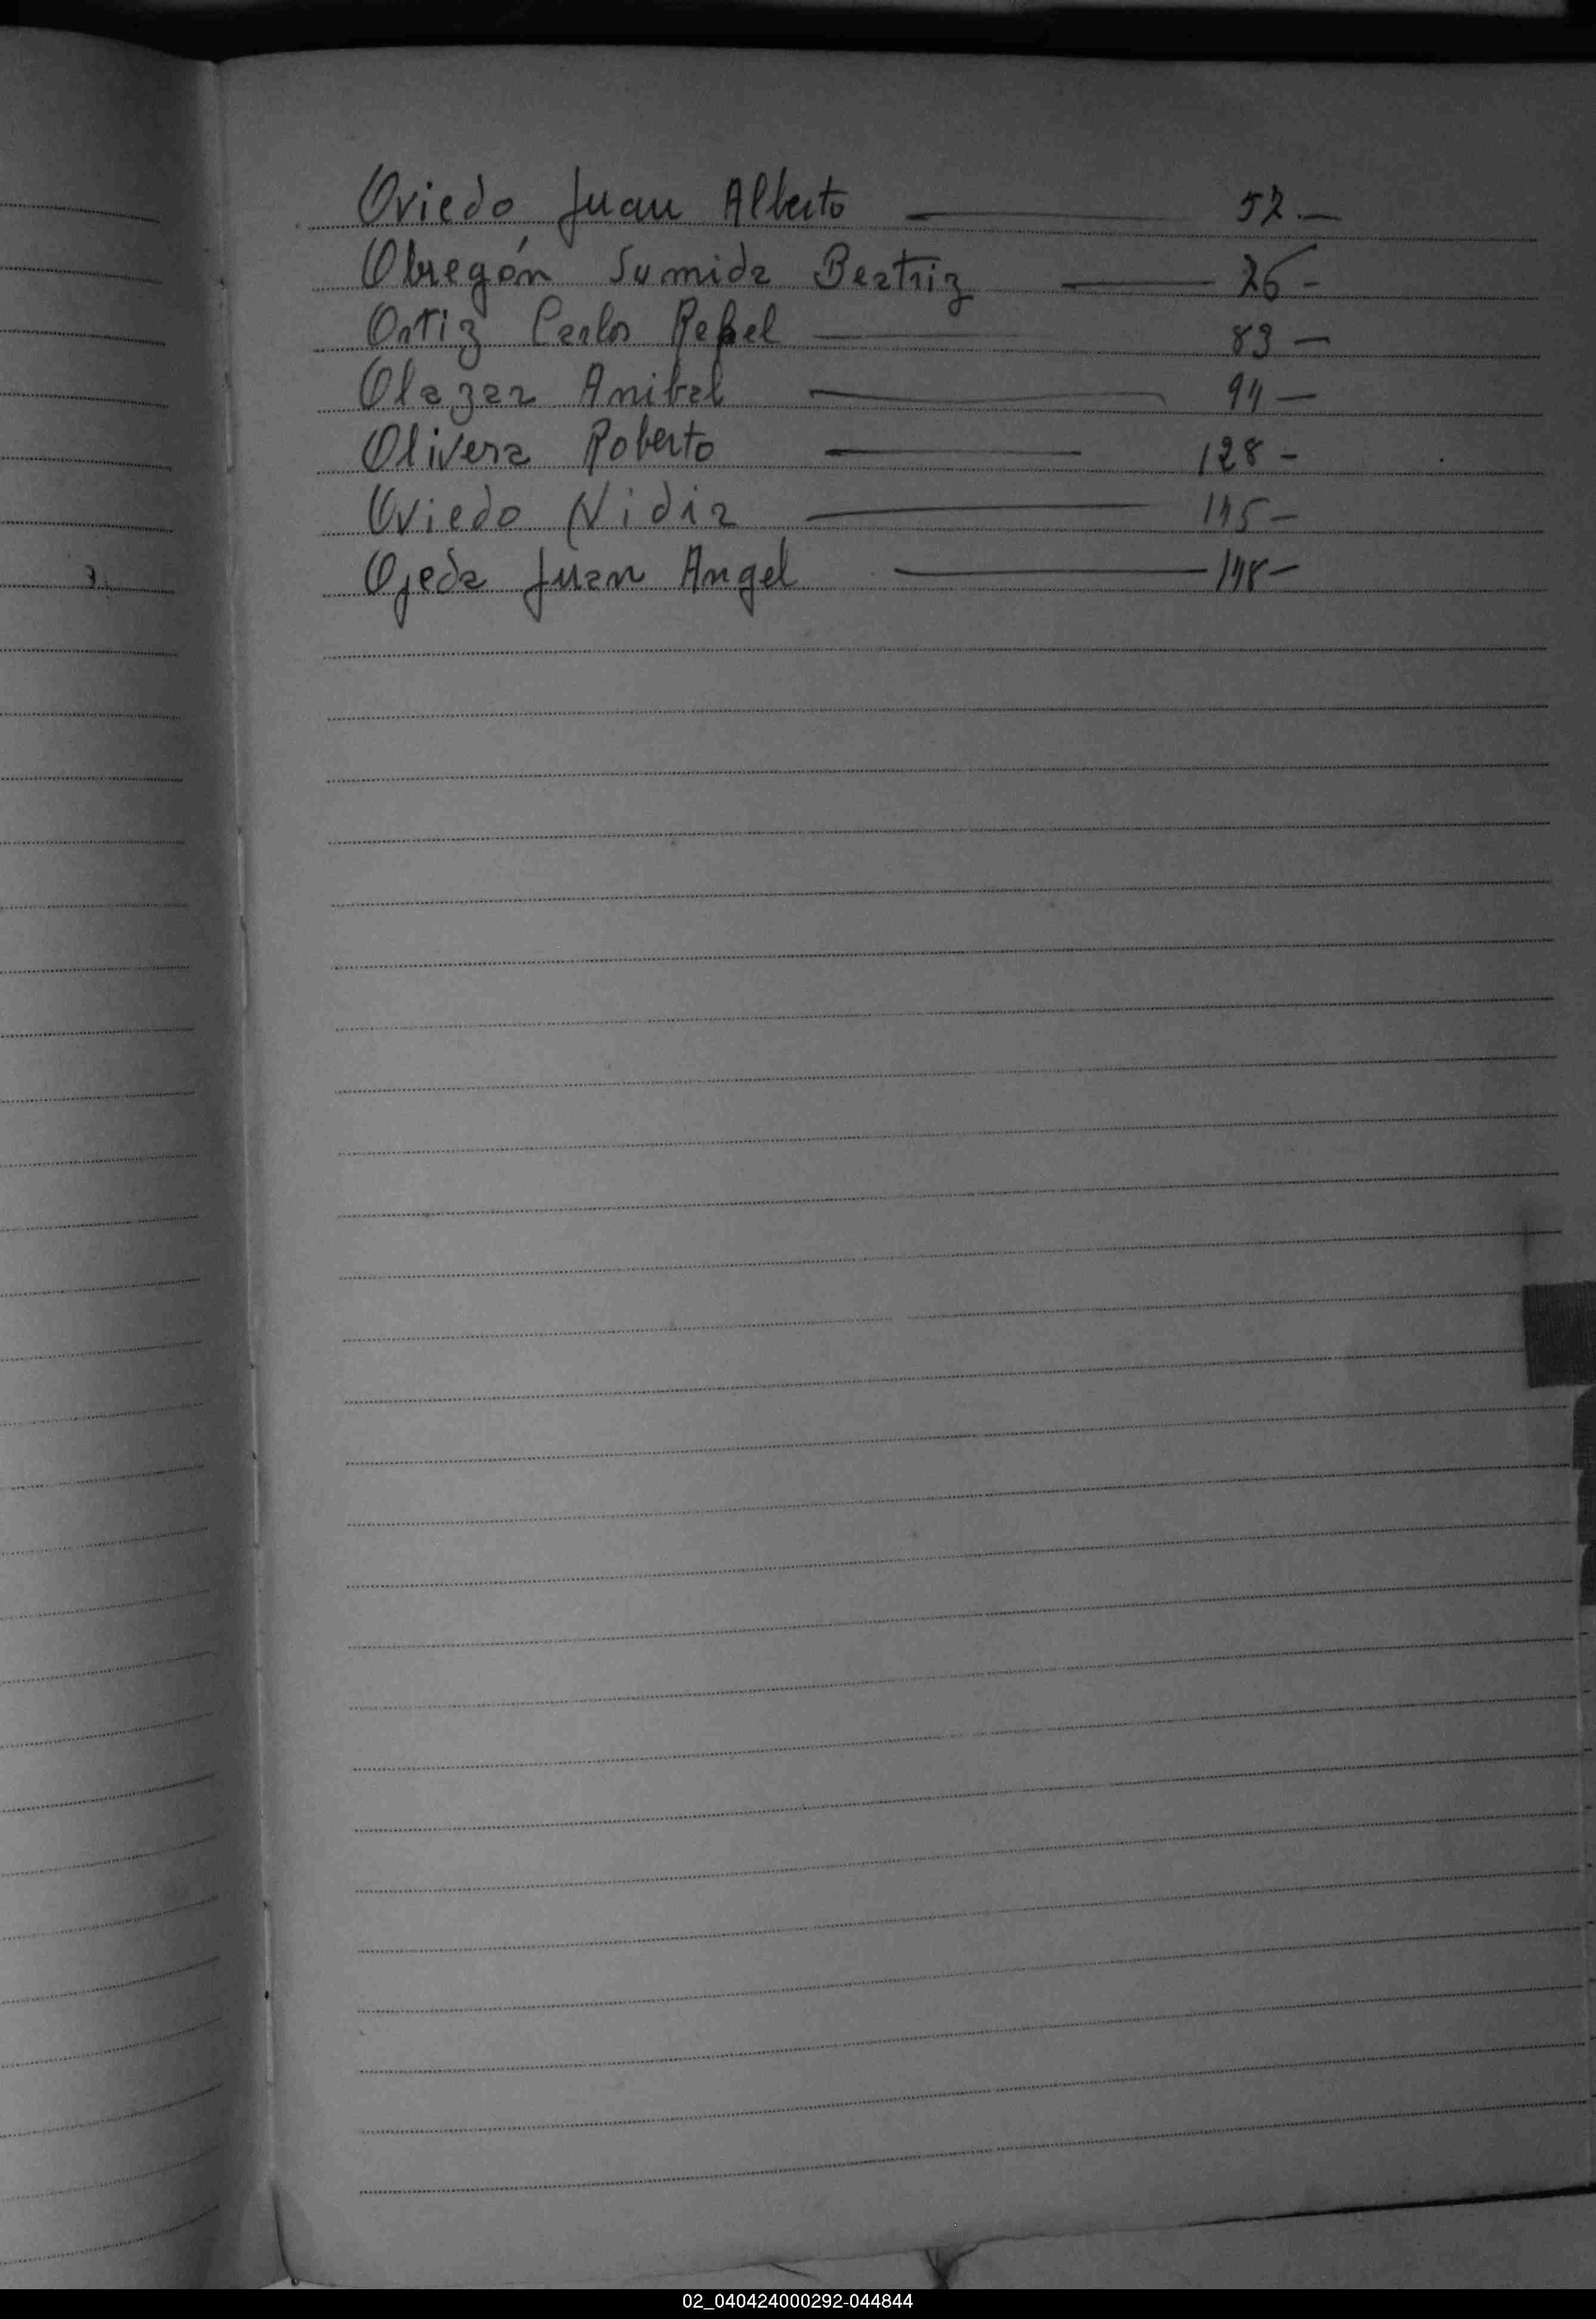 Oviedo Juan Alberto — 52 —
Obregón Sumida Beatriz — 76 -
Ortiz Carlos Rafael — 83 —
Olazar Anibal — 94 —
Olivera Roberto — 128 -
Oviedo Nidia — 145 -
Ojeda Juan Angel — 148 -
02_040424000292-044844